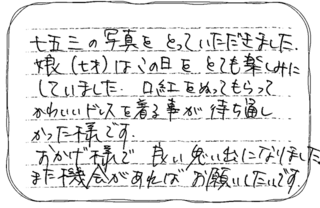 七五三の写真をとっていただきました.
娘(七才)はこの日をとても楽しみに
していました. 口紅をぬってもらって
かわいいドレスを着る事が待ち遠し
かった様です.
おかげ様で良い思い出になりました
また機会があればお願いしたいです.